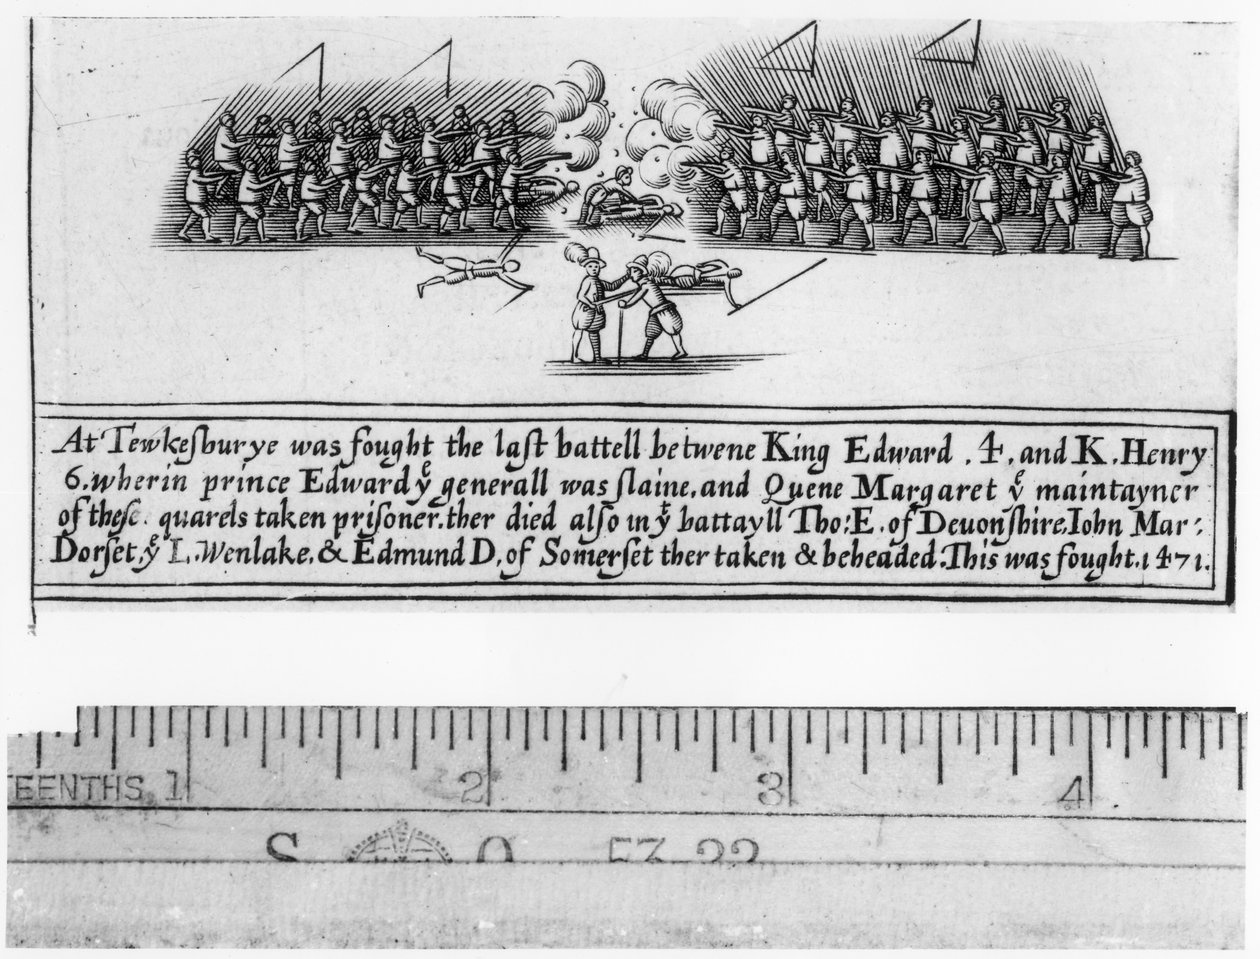 At Tewkeſburye was fought the laſt battell betwene King Edward .4. and K. Henry
6. wherin prince Edward yͤ generall was ſlaine, and Quene Margaret yͤ maintayner
of theſe. quarels taken priſoner. ther died alſo in yͭ battayll Tho: E. of Deuonſhire. Iohn Mar:
Dorſet, yͤ L. Wenlake, & Edmund D, of Somerſet ther taken & beheaded. This was fought. 1471.
EENTHS 1 2 3 4
S O